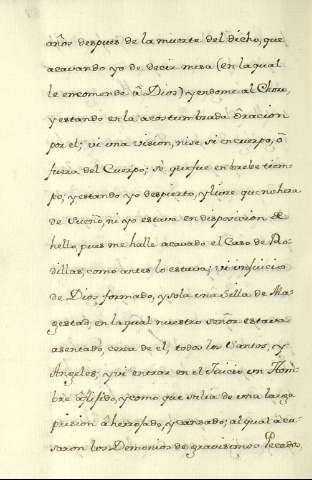 años despues de la muerte del dicho, que
acavando yo de decir misa (en la qual
le encomende â Dios) yendome al Choro,
y estando en la acostumbrada Oracion
por el; vi una vision, nise si en cuerpo, ô
fuera del Cuerpo; sè que fue en brebe tiem-
po, y estando yo despierto, y libre que no hera
de sueño, ni yo estava en disposicion de
hello, pues me halle acavado el Caso de Ro-
dillas, como antes lo estava; vi un juicio
de Dios formado, y sola una Silla de Ma-
gestad, en la qual nuestro señor estava
asentado, cerca de el, todos los Santos, y
Angeles; y vi entrar en el Juicio un Hom-
bre aflijido, y como que salia de una larga
prision âherrojado, y cansado; al qual acu-
saron los Demonios de gravisimos Pecados,